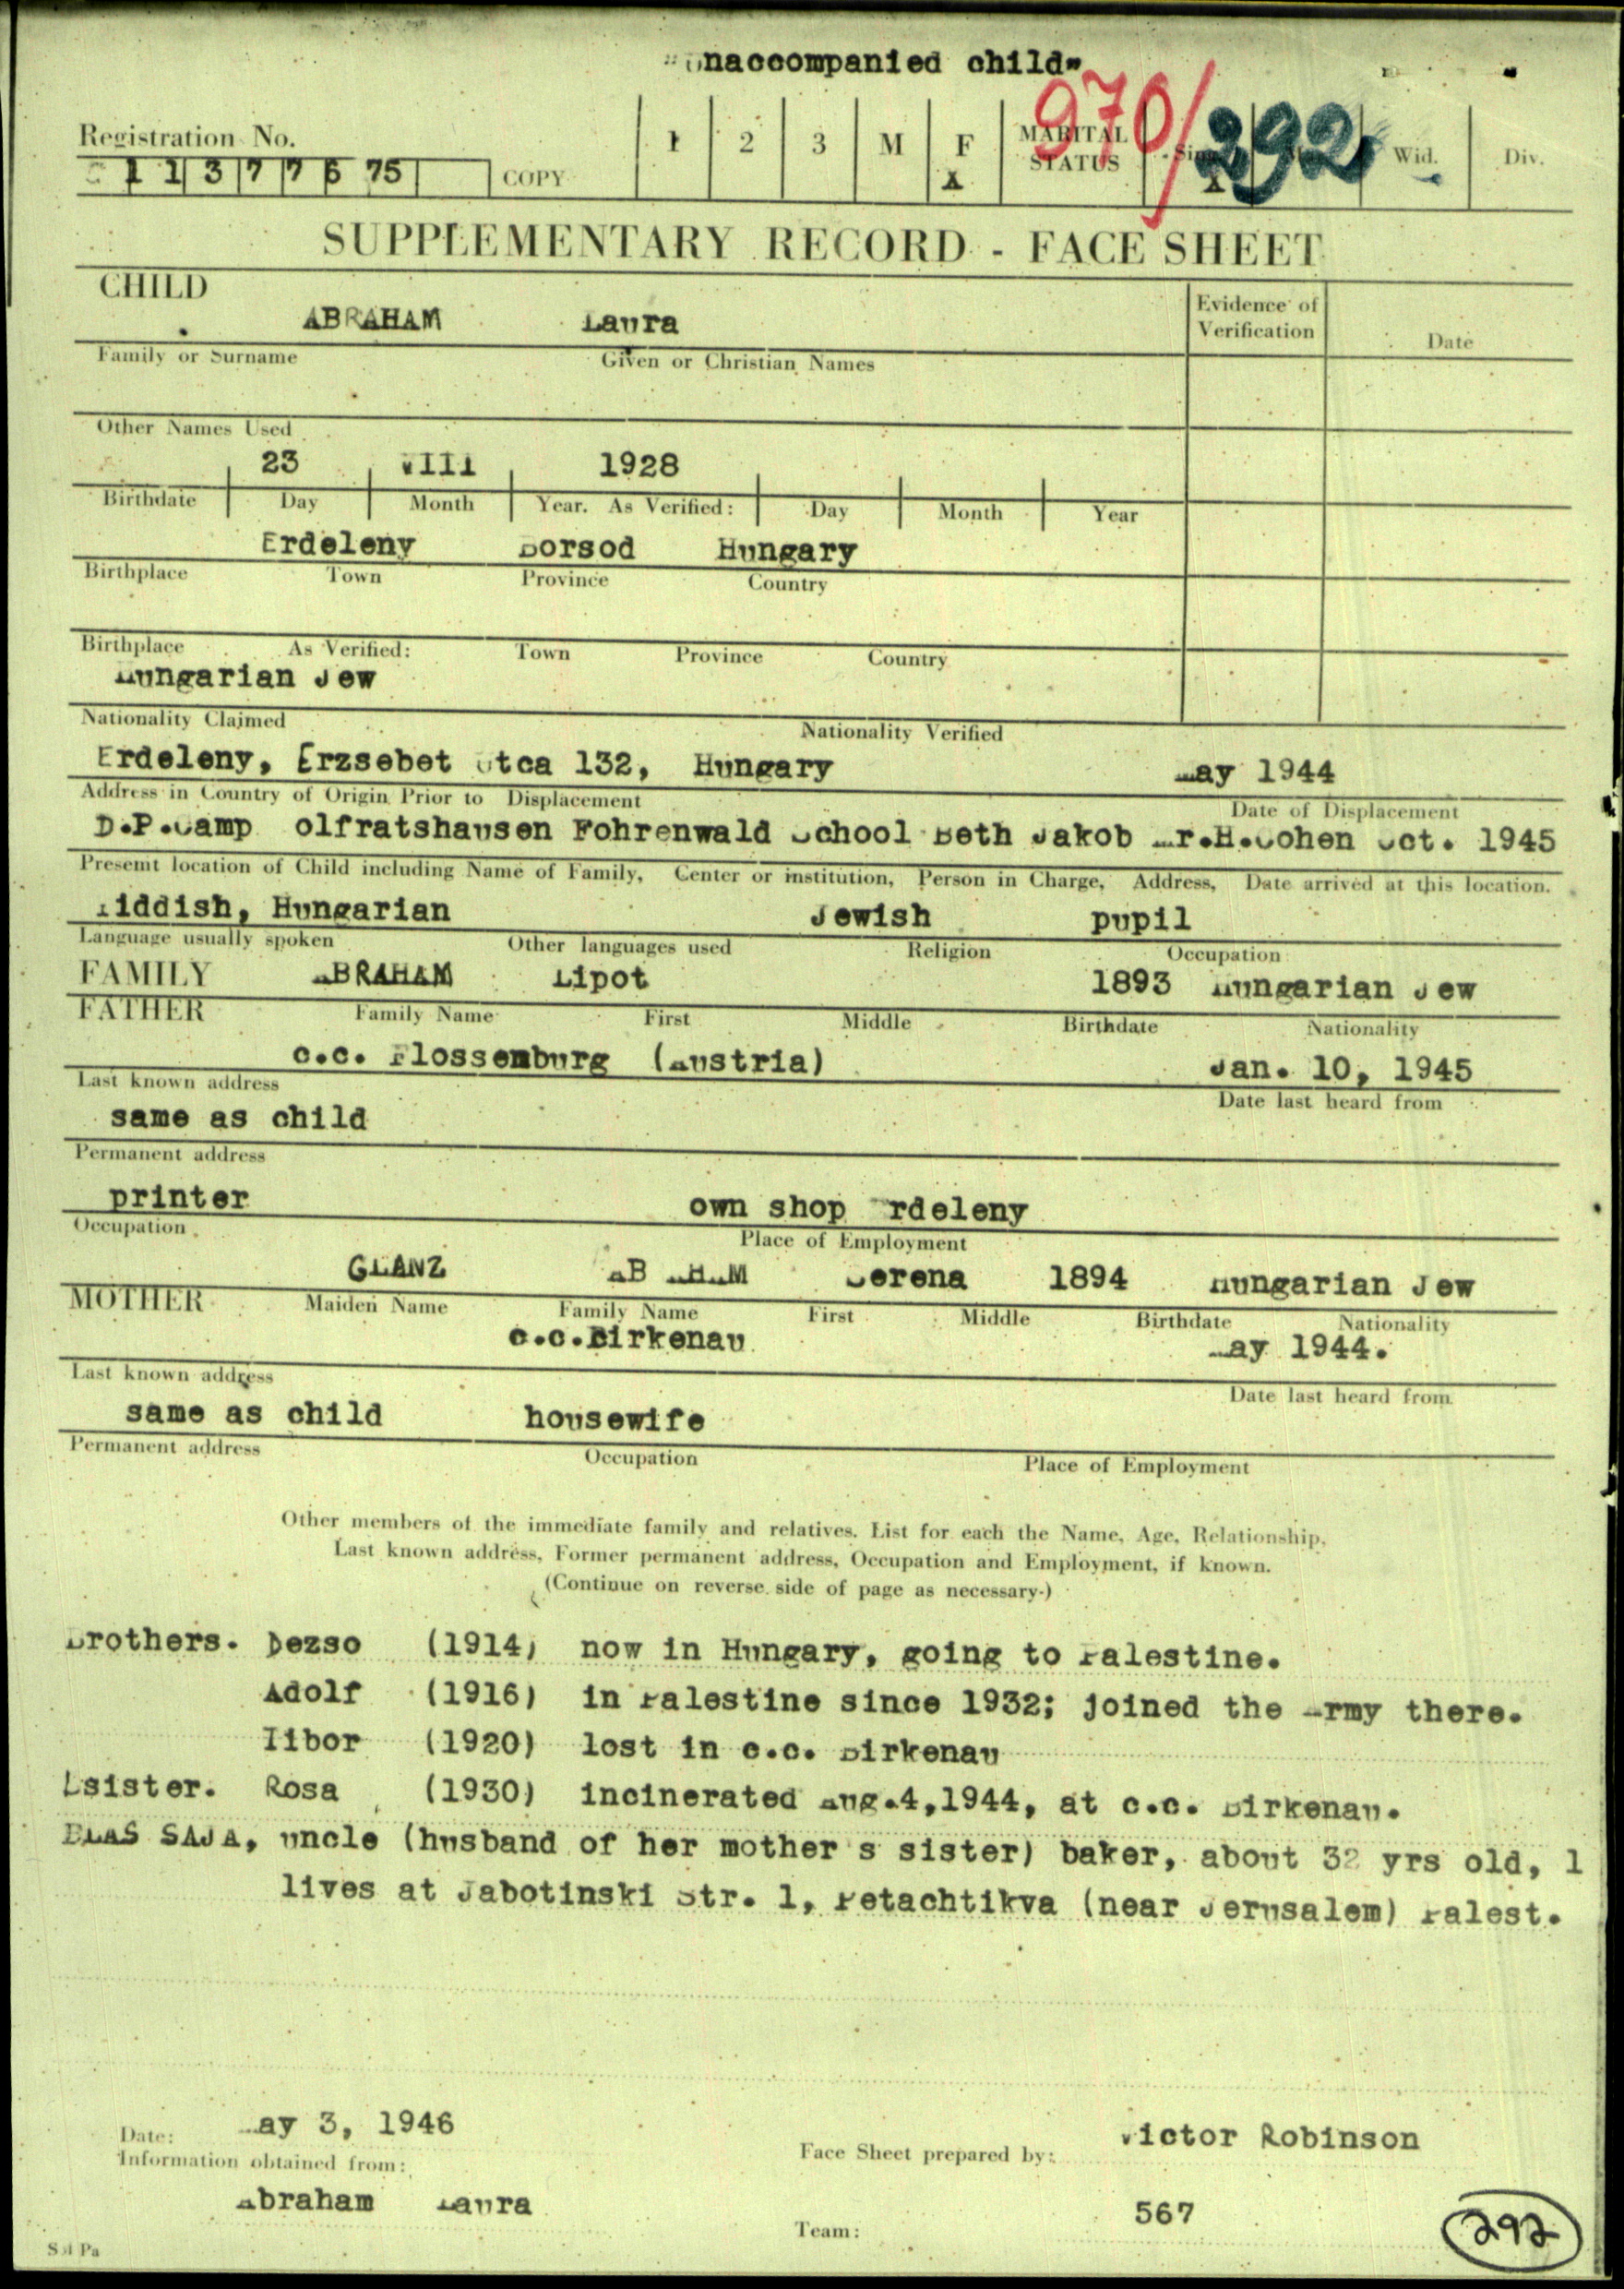 "Unaccompanied child"
970/292
Registration No.
1 1 3 7 7 6 75
COPY
1 2 3 M F MARITAL STATUS Sing. Wid. Div.
X X
SUPPLEMENTARY RECORD - FACE SHEET
CHILD
ABRAHAM Laura
Evidence of Verification Date
Family or Surname Given or Christian Names
Other Names Used
23 VIII 1928
Birthdate Day Month Year. As Verified: Day Month Year
Erdeleny Borsod Hungary
Birthplace Town Province Country
Birthplace As Verified: Town Province Country
Hungarian Jew
Nationality Claimed Nationality Verified
Erdeleny, Erzsebet utca 132, Hungary May 1944
Address in Country of Origin Prior to Displacement Date of Displacement
D.P.Camp olfratshausen Fohrenwald School Beth Jakob Mr.H.Cohen Oct. 1945
Present location of Child including Name of Family, Center or institution, Person in Charge, Address, Date arrived at this location.
Yiddish, Hungarian Jewish pupil
Language usually spoken Other languages used Religion Occupation
FAMILY ABRAHAM Lipot 1893 Hungarian Jew
FATHER Family Name First Middle Birthdate Nationality
c.c. Flossemburg (Austria) Jan. 10, 1945
Last known address Date last heard from
same as child
Permanent address
printer own shop Erdeleny
Occupation Place of Employment
GLANZ ABRAHAM Serena 1894 Hungarian Jew
MOTHER Maiden Name Family Name First Middle Birthdate Nationality
c.c.Birkenau May 1944.
Last known address Date last heard from
same as child housewife
Permanent address Occupation Place of Employment
Other members of the immediate family and relatives. List for each the Name, Age, Relationship,
Last known address, Former permanent address, Occupation and Employment, if known.
(Continue on reverse side of page as necessary.)
Brothers. Dezso (1914) now in Hungary, going to Palestine.
Adolf (1916) in Palestine since 1932; joined the Army there.
Tibor (1920) lost in c.c. Birkenau
Lsister. Rosa (1930) incinerated Aug.4,1944, at c.c. Birkenau.
ELAS SAJA, uncle (husband of her mother s sister) baker, about 32 yrs old, l
lives at Jabotinski Str. 1, Petachtikva (near Jerusalem) Palest.
Date: May 3, 1946
Information obtained from:
Face Sheet prepared by: Victor Robinson
Abraham Laura
Team: 567
292